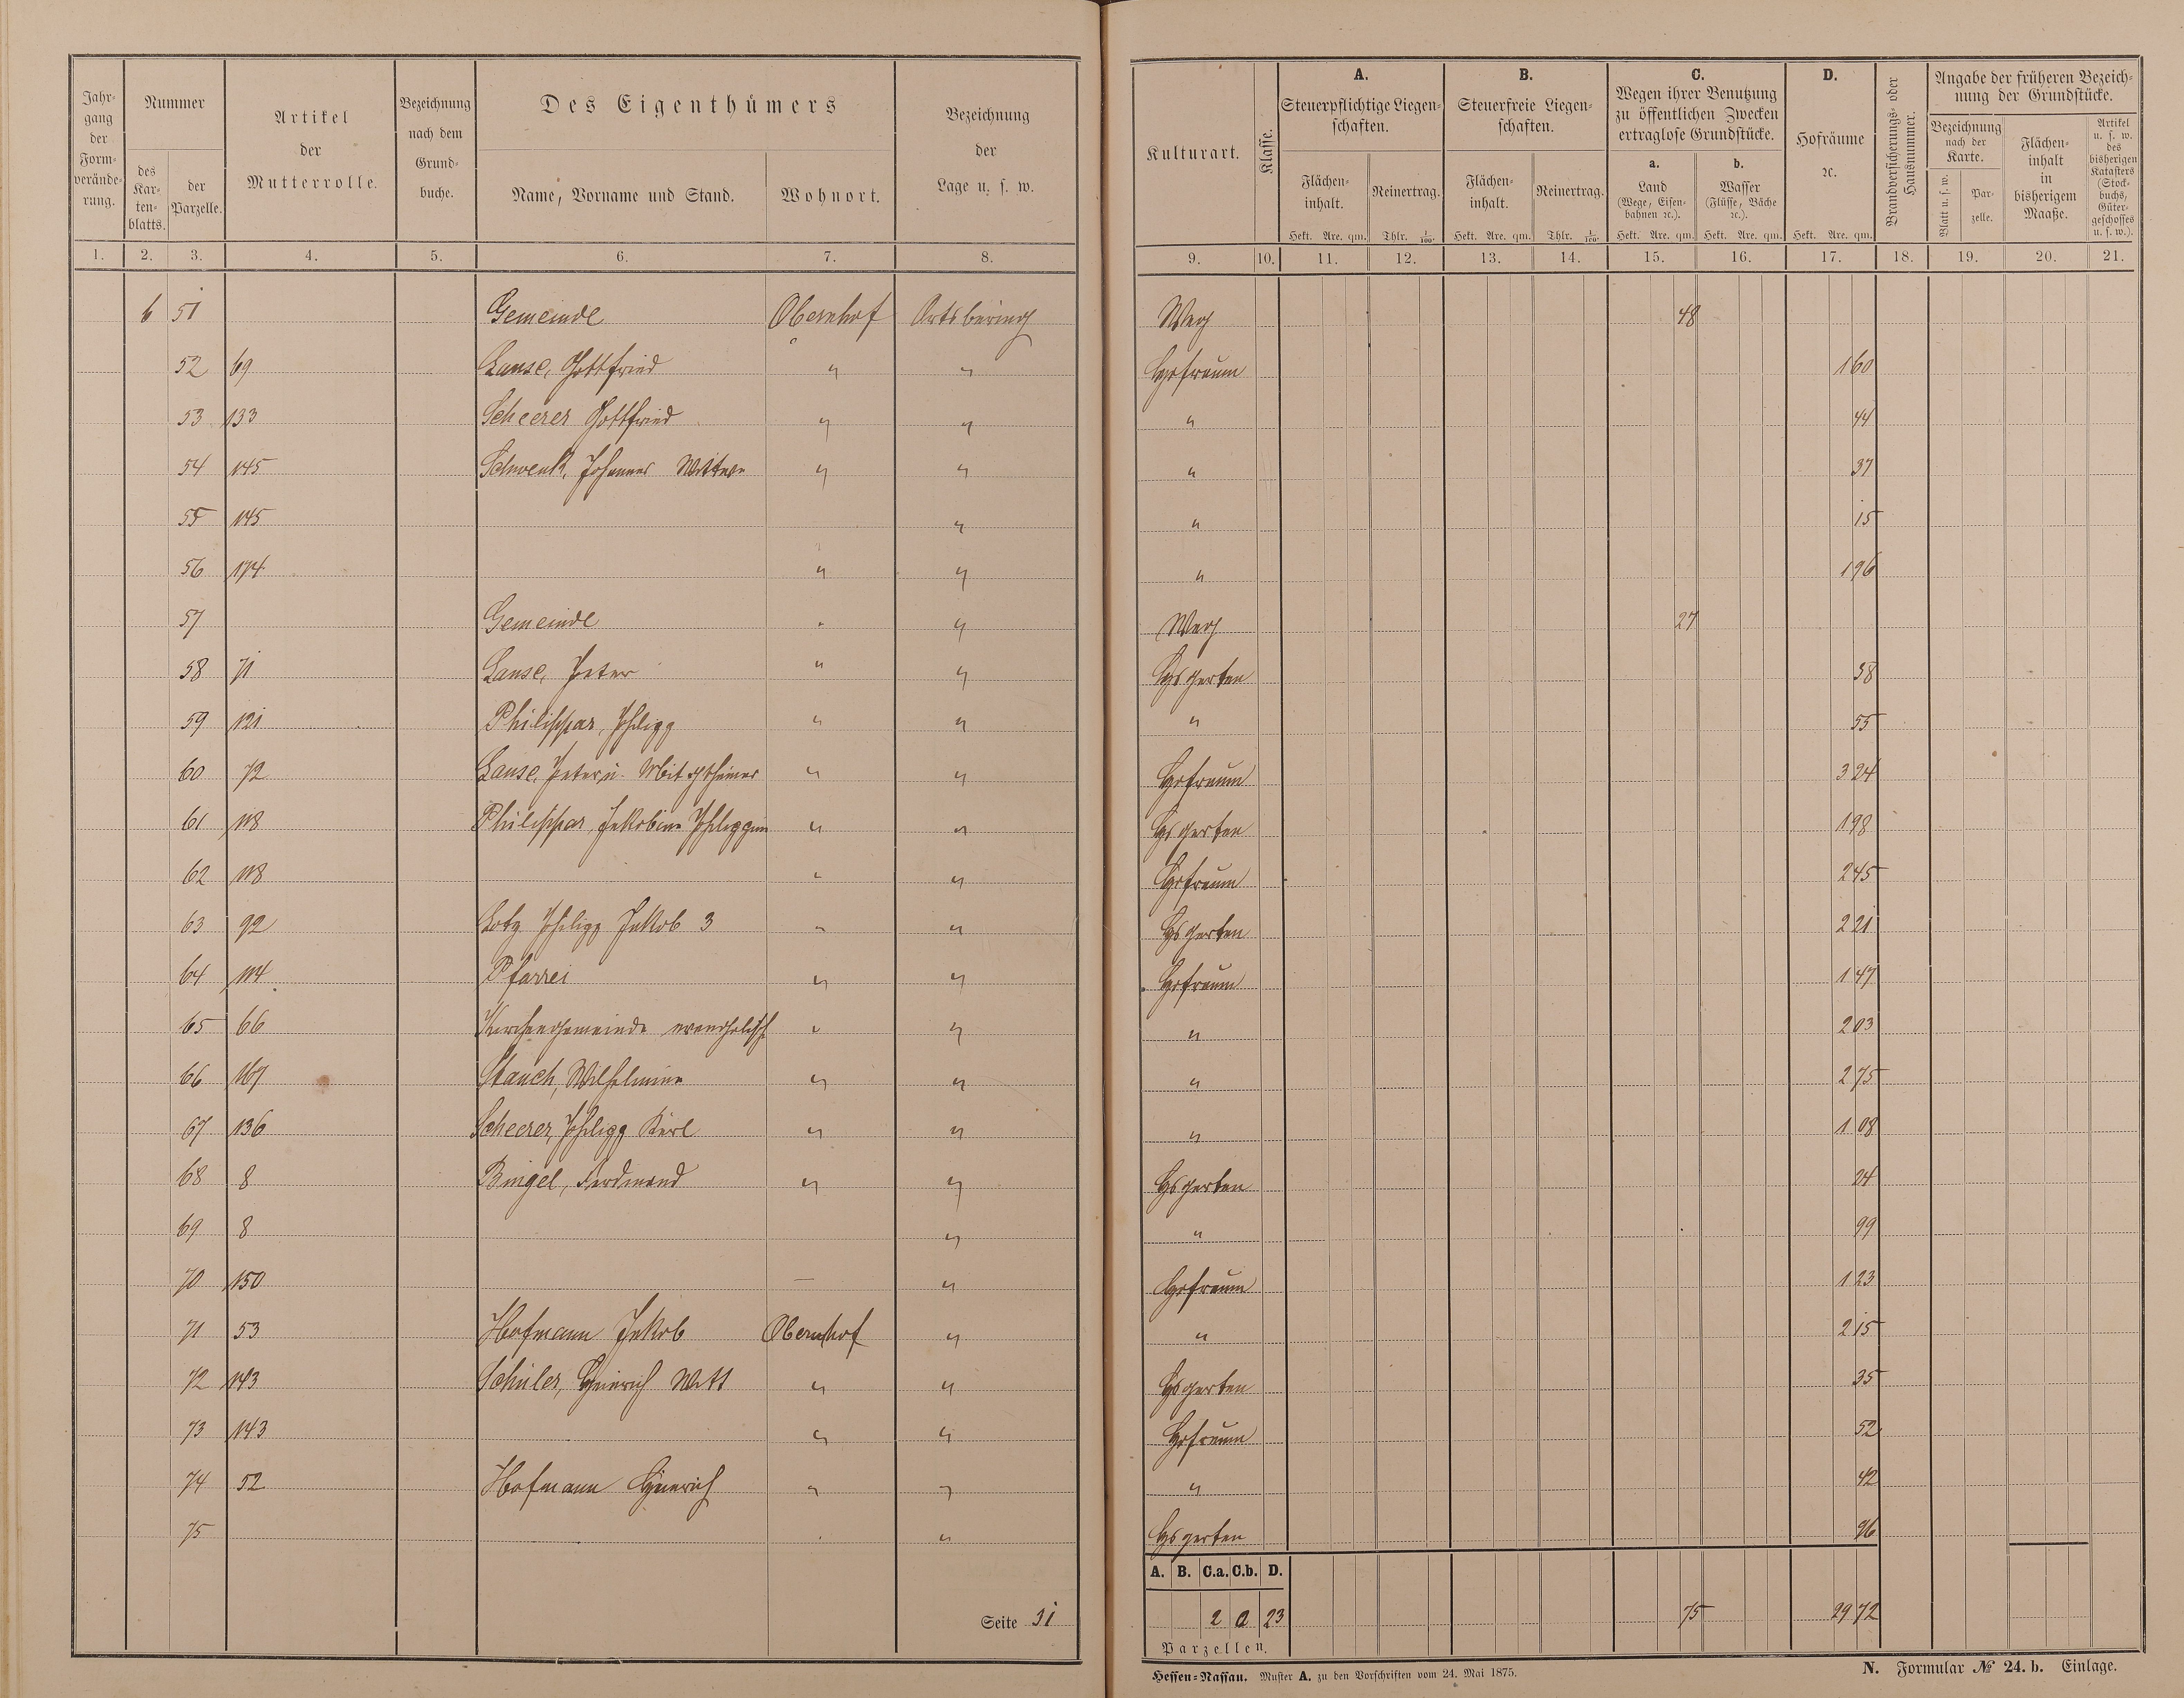 Jahrgang der Formveränderung.
Nummer
des Kartenblatts.
der Parzelle.
Artikel der Mutterrolle.
Bezeichnung nach dem Grundbuche.
Des Eigenthümers
Name, Vorname und Stand.
Wohnort.
Bezeichnung der Lage u. s. w.
Kulturart.
Klasse.
A. Steuerpflichtige Liegenschaften.
Flächeninhalt. Hekt. Are. qm.
Reinertrag. Thlr. 1/100.
B. Steuerfreie Liegenschaften.
Flächeninhalt. Hekt. Are. qm.
Reinertrag. Thlr. 1/100.
C. Wegen ihrer Benutzung zu öffentlichen Zwecken ertraglose Grundstücke.
a. Land (Wege, Eisenbahnen ꝛc.). Hekt. Are. qm.
b. Wasser (Flüsse, Bäche ꝛc.). Hekt. Are. qm.
D. Hofräume ꝛc. Hekt. Are. qm.
Brandversicherungs- oder Hausnummer.
Angabe der früheren Bezeichnung der Grundstücke.
Bezeichnung nach der Karte.
Blatt u. s. w.
Parzelle.
Flächeninhalt in bisherigem Maaße.
Artikel u. s. w. des bisherigen Katasters (Stockbuchs, Gütergeschosses u. s. w.).
1. 2. 3. 4. 5. 6. 7. 8. 9. 10. 11. 12. 13. 14. 15. 16. 17. 18. 19. 20. 21.
6 51 Gemeinde Obernhof Ortsbering Weg 48
52 69 Lause, Gottfried " " Hofraum 160
53 133 Scheerer Gottfried " " " 44
54 145 Schwenk, Johannes Wittwe " " " 37
55 145 " " 15
56 174 " " " 196
57 Gemeinde " " Weg 27
58 71 Lause, Peter " " Hsgarten 58
59 121 Philippar, Philipp " " " 55
60 72 Lause, Peter u. Miteigthümer " " Hofraum 324
61 118 Philippar, Jakobine Philippine " " Hsgarten 198
62 118 " " Hofraum 245
63 92 Lotz Philipp Jakob 3 " " Hsgarten 221
64 114 Pfarrei " " Hofraum 147
65 66 Kirchengemeinde evangelisch " " " 203
66 167 Stauch, Wilhelmine " " " 275
67 136 Scheerer, Philipp Karl " " " 108
68 8 Bingel, Ferdinand " " Hsgarten 24
69 8 " " 99
70 150 — " Hofraum 123
71 53 Hofmann Jakob Obernhof " " 215
72 143 Schüler, Heinrich Witt " " Hsgarten 35
73 143 " " Hofraum 52
74 52 Hofmann Heinrich " " " 42
75 " Hsgarten 96
A. B. C.a. C.b. D.
2 0 23 75 2972
Parzellen.
Seite 31
Hessen-Nassau. Muster A. zu den Vorschriften vom 24. Mai 1875.
N. Formular № 24. b. Einlage.